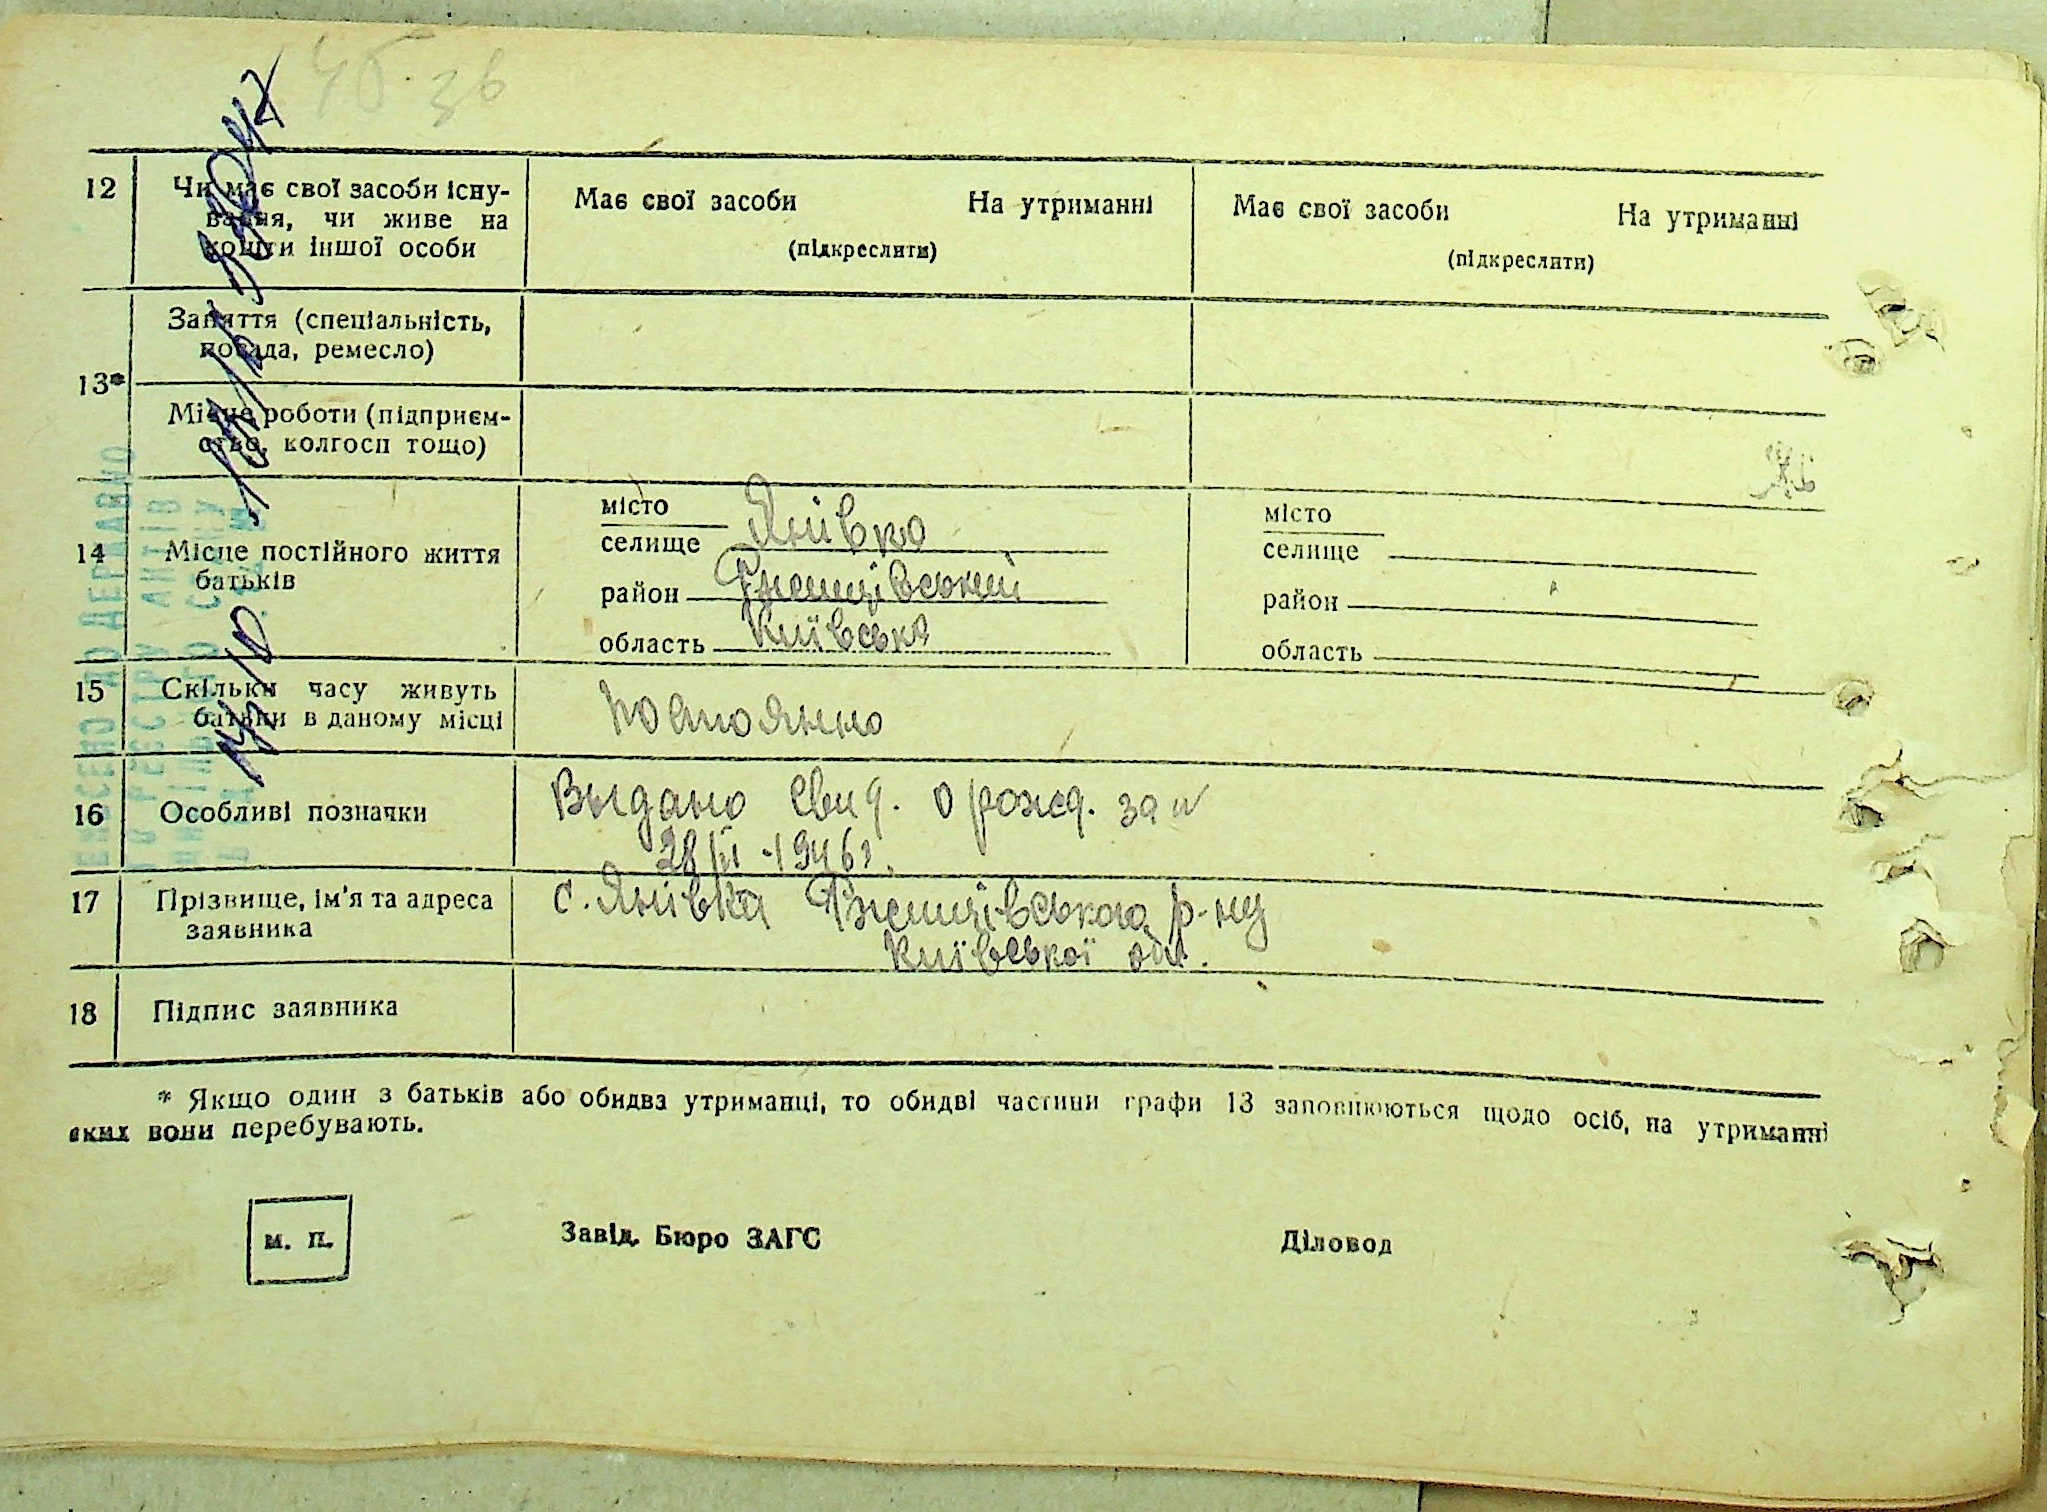 46. зв
12 Чи має свої засоби існу-
вання, чи живе на
кошти іншої особи
Має свої засоби На утриманні
(підкреслити)
Має свої засоби На утриманні
(підкреслити)
13*
Заняття (спеціальність,
посада, ремесло)
Місце роботи (підприєм-
ство, колгосп тощо)
14 Місце постійного життя
батьків
місто
селище Янівка
район Ржищівський
область Київська
місто
селище
район
область
15 Скільки часу живуть
батьки в даному місці
постоянно
16 Особливі позначки
Выдано свид. о рожд. за №
28/II-1946г.
17 Прізвище, ім'я та адреса
заявника
с. Янівка Ржищівського р-ну
Київської обл.
18 Підпис заявника
* Якщо один з батьків або обидва утриманці, то обидві частини графи 13 заповнюються щодо осіб, на утриманні
яких вони перебувають.
м. п.
Завід. Бюро ЗАГС
Діловод
ДО ДЕРЖАВНО
РЕЄСТРУ АКТІВ